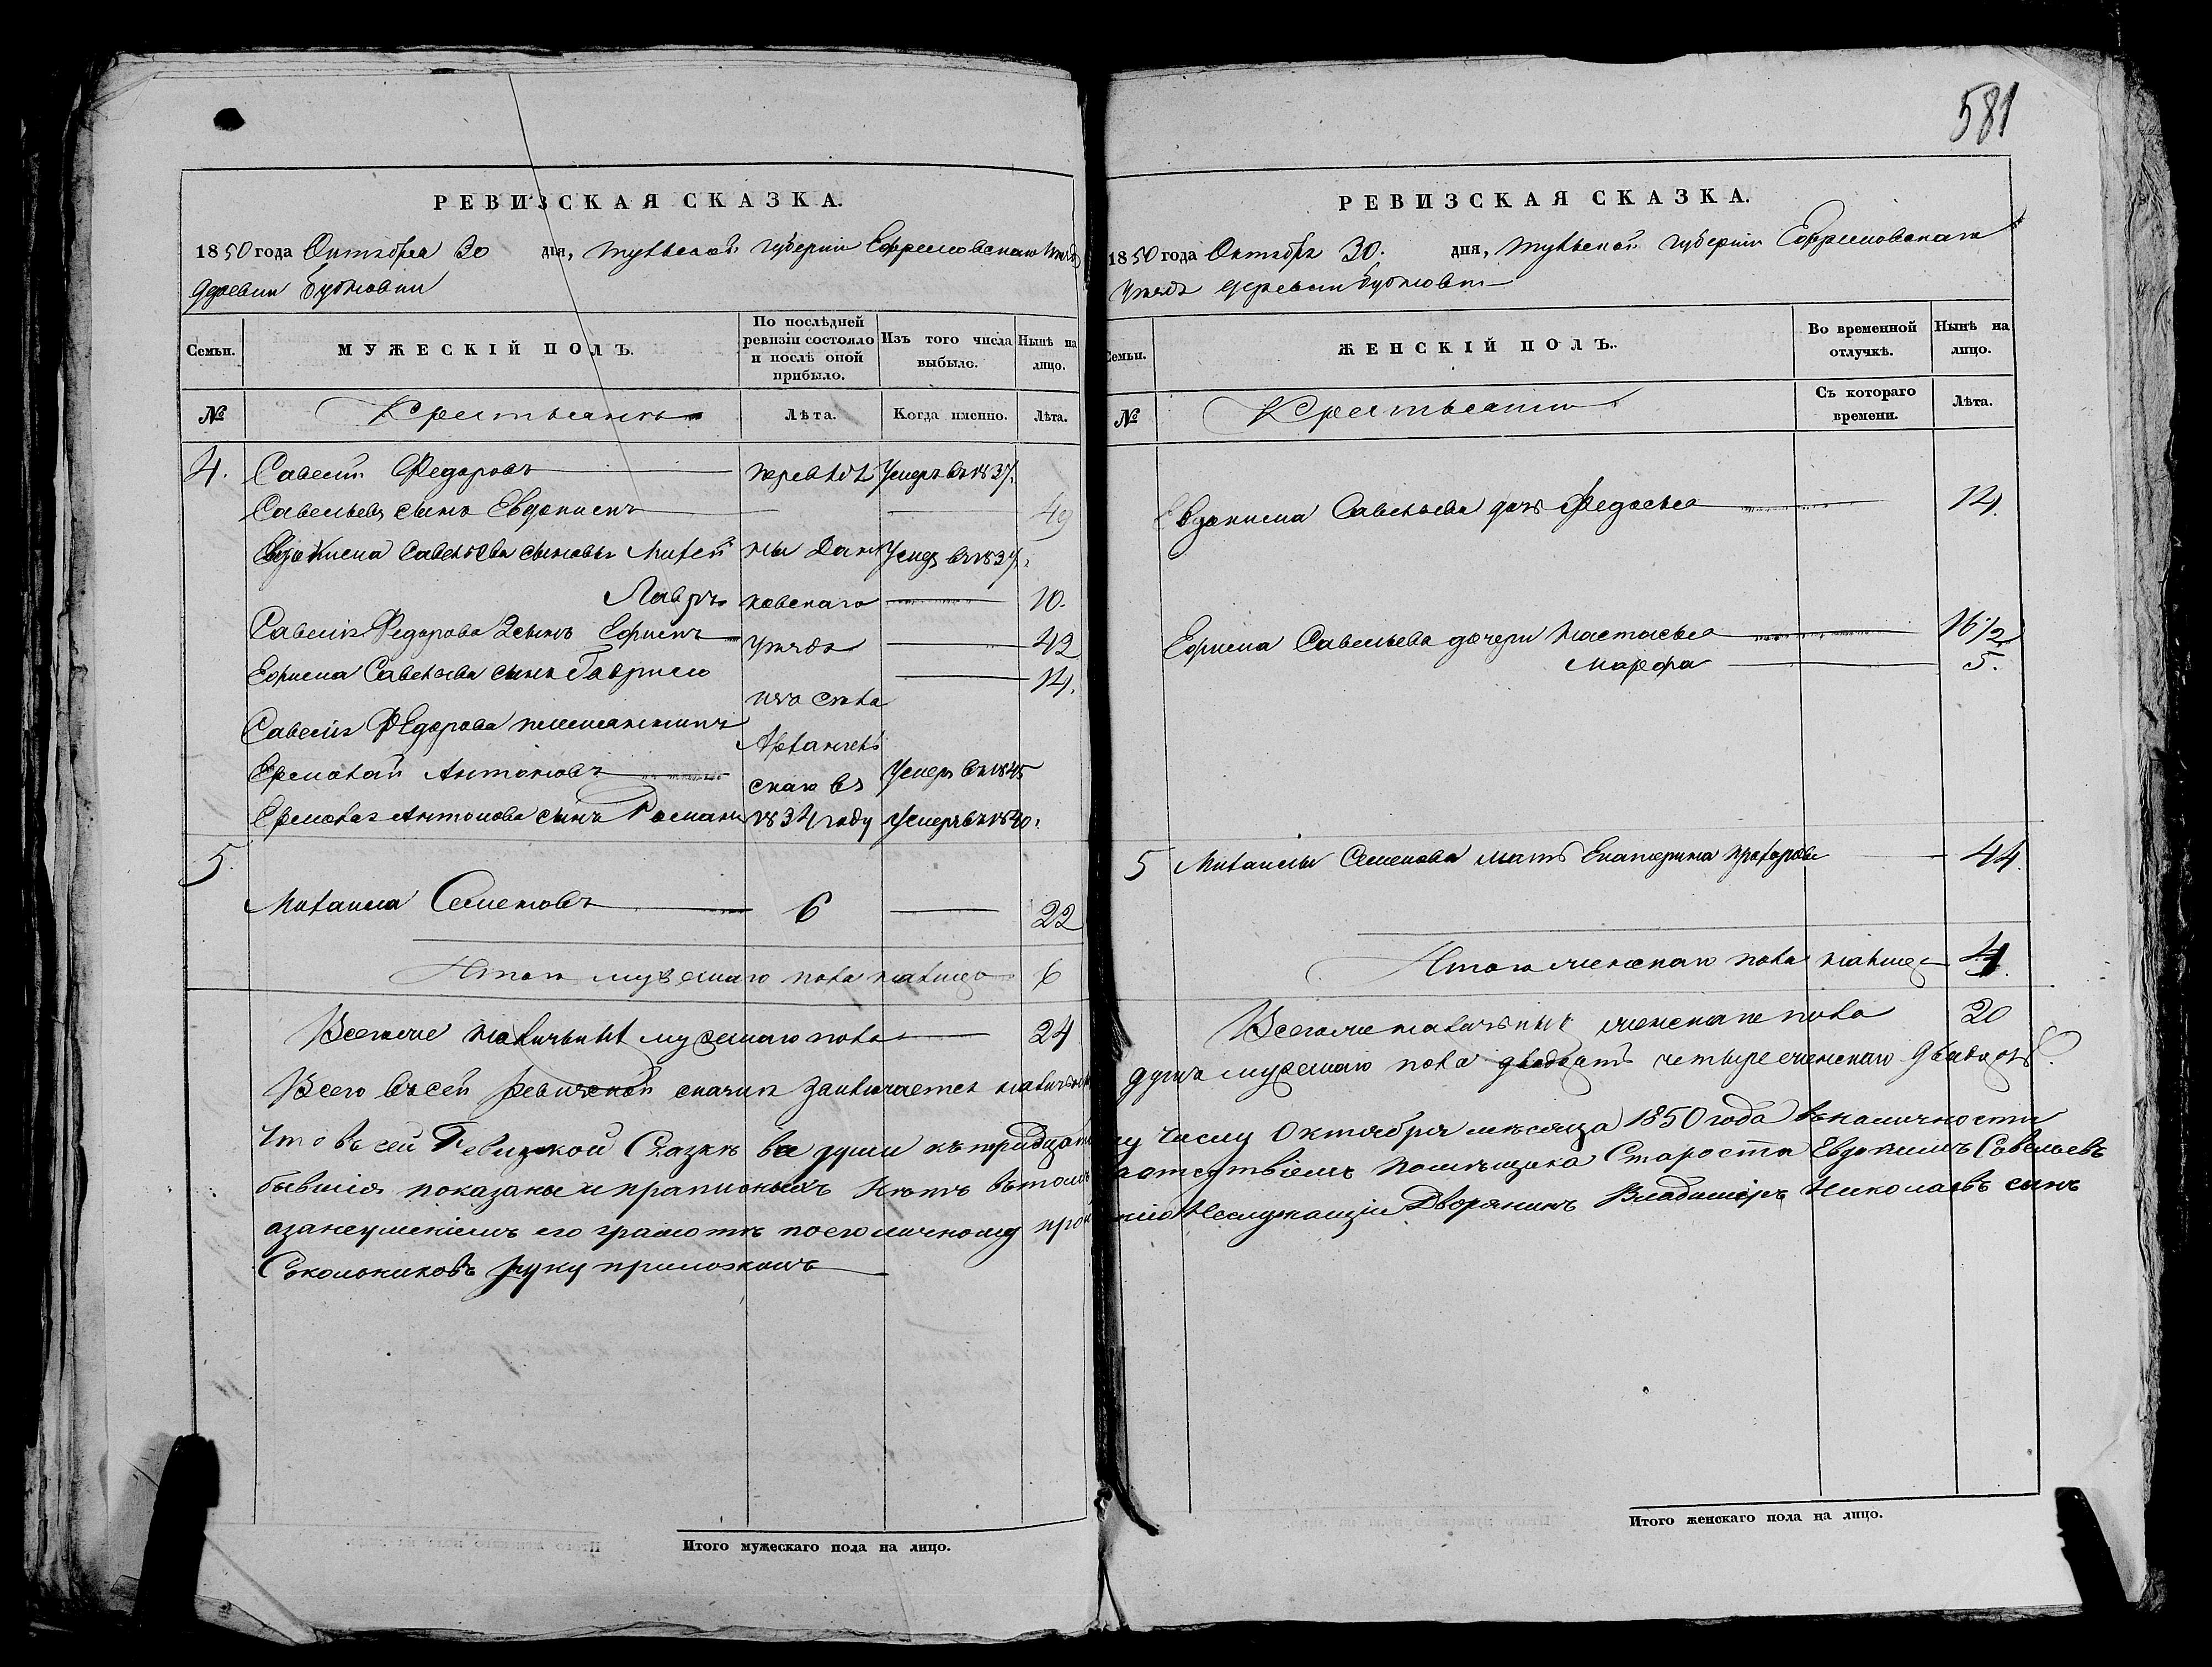 581
РЕВИЗСКАЯ СКАЗКА.
1850 года Октября 30 дня, тульской губернии Ефремовскаго уезда
деревни
Семьи. МУЖЕСКІЙ ПОЛЪ. По послѣдней ревизіи состояло и послѣ оной прибыло. Изъ того числа выбыло. Нынѣ на лицо.
№ Крестьянъ Лѣта. Когда именно. Лѣта.
4. Савелій Федоровъ переведе Умеръ въ 1837.
Савельевъ сынъ Евдокимъ — — 49
Евдокима Савельева сыновья Михей ны Данк Умеръ въ 1837.
Лавръ ковскаго — 10.
Савелія Федорова 2 сынъ Ефимъ уезда — 42
Ефима Савельева сынъ Гаврило — 14.
изъ села
Савелія Федорова племянникъ
Архангель
Ермолай Антоновъ скаго въ Умеръ въ 1845
Ермолая Антонова сынъ Романъ 1834 году Умеръ въ 1840.
5.
Михаила Семеновъ 6 — 22
Итого мужескаго пола налицо 6
Всего наличныхъ мужескаго пола 24
Всего въ сей ревизской сказки заключается наличныхъ
Что в сей Ревизской Сказке все души к тридцато
бывшія показаны и прописныхъ нетъ в томъ
азанеумениемъ его грамоте по его личному про
Сокольниковъ руку приложилъ
Итого мужескаго пола на лицо.
РЕВИЗСКАЯ СКАЗКА.
1850 года Октября 30. дня, тульской губерніи Ефремовскаго
уезда деревни
Семьи. ЖЕНСКІЙ ПОЛЪ. Во временной отлучкѣ. Нынѣ на лицо.
№ Крестьяне Съ котораго времени. Лѣта.
Евдокима Савельева дочь Федосья — 14.
Ефима Савельева дочери Настасья — 16 1/2
Марфа — 5.
5 Михаилы Семенова мать Екатерина — 44.
Итого женскаго пола налицо 4
Всего наличныхъ женскаго пола 20
душъ мужескаго пола двадцать четыре женскаго двадцать.
му числу Октября месяца 1850 года в наличности
заотсутствіемъ помещика Староста Евдокимъ Савельевъ
Неслужащій Дворянинъ Владимиръ Николаевъ сынъ
Итого женскаго пола на лицо.